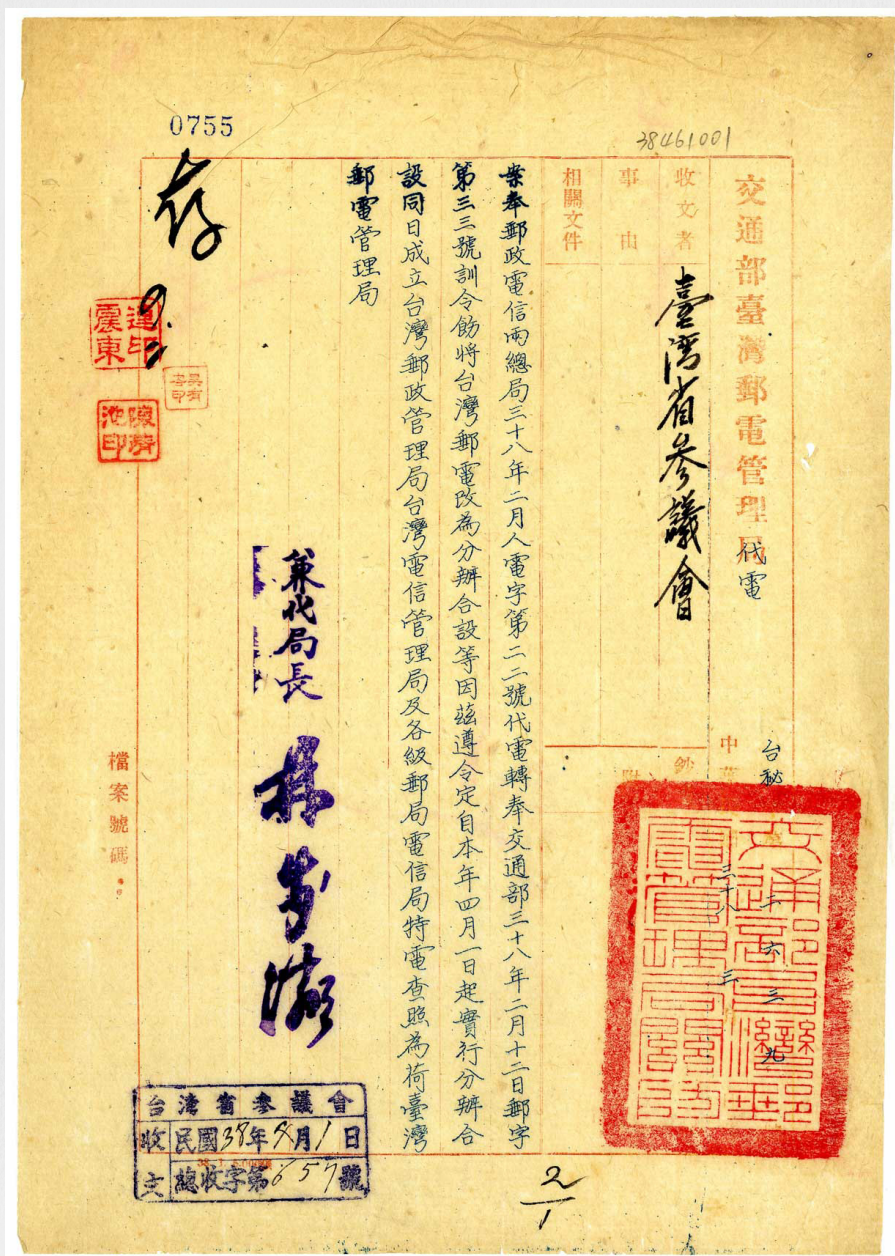 0755
38461001
交通部臺灣郵電管理局代電
收文者 臺灣省參議會
事由
相關文件
台秘
二六三九
三十八 三
案奉郵政電信兩總局三十八年二月人電字第二二號代電轉奉交通部三十八年二月十二日郵字
第三三號訓令飭將台灣郵電改為分辦合設等因茲遵令定自本年四月一日起實行分辦合
設同日成立台灣郵政管理局台灣電信管理局及各級郵局電信局特電查照為荷臺灣
郵電管理局
兼代局長
存
連震東印
陳清池印
檔案號碼
台灣省參議會
收文
民國38年4月1日
總收字第657號
2/1